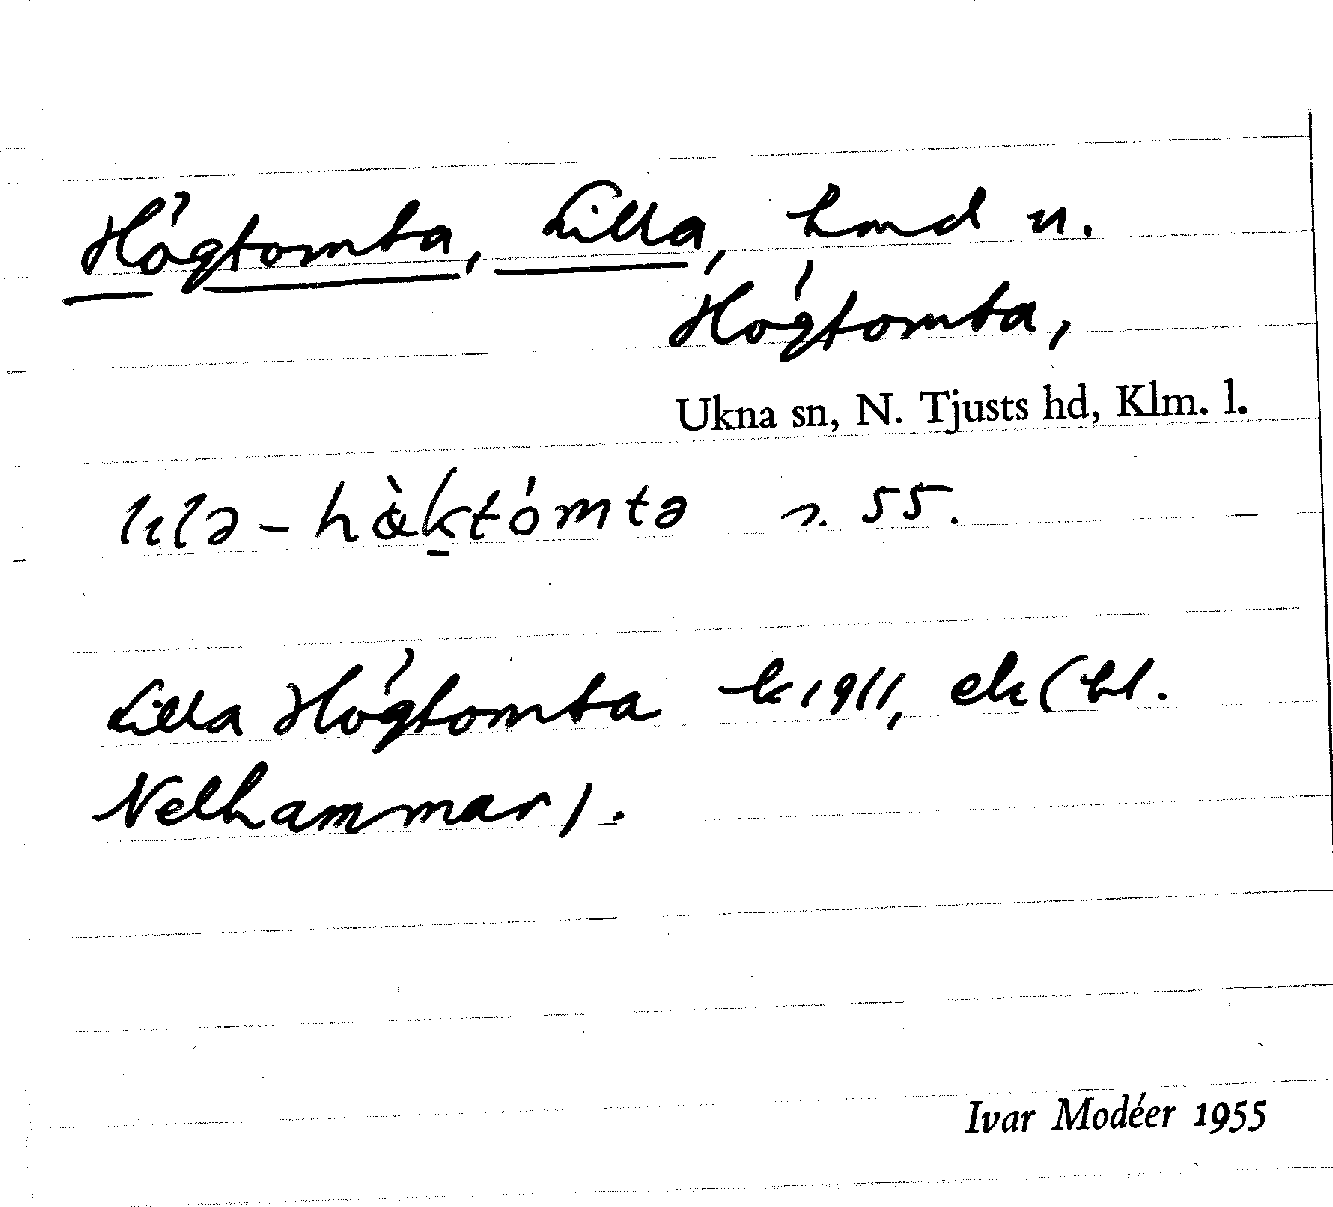 Högtomta, Lilla, hmd u.
Högtomta,
Ukna sn, N. Tjusts hd, Klm. l.
s. 55.
Lilla Högtomta k 1911, ek (bl.
Nelhammar).
Ivar Modéer 1955